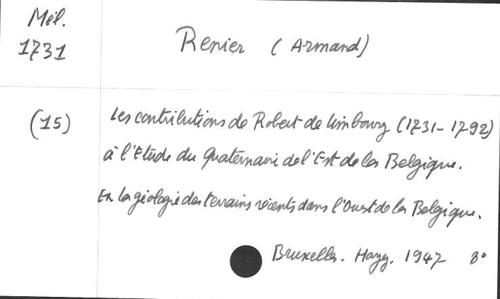 Mél.
1731
Renier (Armand)
(15)
Les contributions de Robert de Limbourg (1731-1792)
à l'Etude du Quaternaire de l'Est de la Belgique.
Ex La géologie des terrains récents dans l'Ouest de la Belgique.
Bruxelles. Hayez. 1947 8°